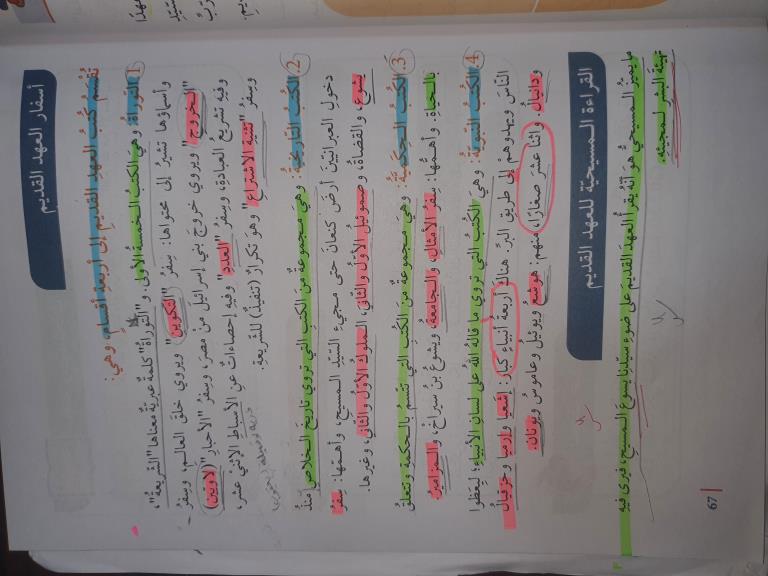 أسفار العهد القديم
تُقسَم كتبُ العهدِ القديمِ إلى أربعةِ أقسامٍ، وهي:
1. التوراةُ: وهي الكتبُ الخمسةُ الأولى. و"التوراةُ" كلمةٌ عبريّةٌ معناها "الشريعةُ"،
وأسماؤها تشيرُ إلى محتواها: سفرُ "التكوين" ويروي خلقَ العالمِ، وسفرُ
"الخروج" ويروي خروجَ بني إسرائيلَ من مصرَ، وسفرُ "الأحبار" (لاويين)
وفيهِ تشريعُ العبادةِ، وسفرُ "العدد" وفيه إحصاءاتٌ عنِ الأسباطِ الإثني عشر،
وسفرُ "تثنية الاشتراع" وهو تكرارٌ (تنفيذٌ) للشريعةِ.
2. الكتبُ التاريخيّةُ: وهي مجموعةٌ منَ الكتبِ التي تروي تاريخَ الخلاصِ منذُ
دخولِ العبرانيّينَ أرضَ كنعانَ حتى مجيءِ السيّدِ المسيحِ، وأهمّها: سفرُ
يشوع، والقضاة، وصموئيلُ الأوّلُ والثاني، الملوكُ الأوّلُ والثاني، وغيرها.
3. الكتبُ الحِكَميّةُ: وهي مجموعةٌ منَ الكتبِ التي تتّسمُ بالحكمةِ وتتعلّقُ
بالحياةِ. وأهمّها: سفرُ الأمثالِ، والجامعةِ، ويشوعَ بنِ سيراخ، والمزاميرُ.
4. الكتبُ النبويّةُ: وهي الكتبُ التي تروي ما قالهُ اللهُ على لسانِ الأنبياءِ، ليَعِظوا
الناسَ ويهدوهُم إلى طريقِ البرِّ. هناكَ أربعةُ أنبياءَ كبارٍ: إشَعيا وإرميا وحزقيالُ
ودانيالُ. واثنا عشرَ صغارًا، منهم: هوشعُ ويوئيلُ وعاموسُ ويونان.
القراءة المسيحيّة للعهد القديم
ما يميّزُ المسيحيَّ هو أنّهُ يقرأُ العهدَ القديمَ على ضوءِ سيّدِنا يسوعَ المسيح، فيرى فيهِ
تهيئةَ البشرِ لمجيئِهِ.
67